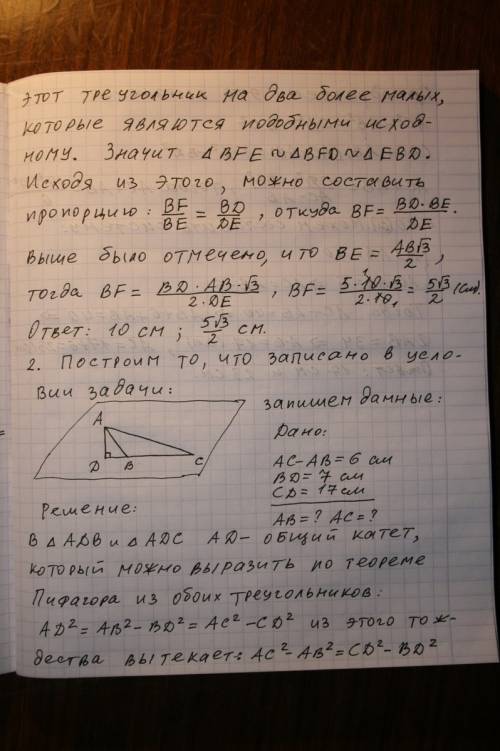 этот треугольник на два более малых,
которые являются подобными исход-
ному. Значит △BFE ~ △BFD ~ △EBD.
Исходя из этого, можно составить
пропорцию: BF/BE = BD/DE, откуда BF = BD·BE/DE.
Выше было отмечено, что BE = AB√3/2,
тогда BF = BD·AB·√3/2·DE, BF = 5·10·√3/2·10 = 5√3/2 (см).
Ответ: 10 см; 5√3/2 см.
2. Построим то, что записано в усло-
вии задачи:
запишем данные:
A
D B C
Дано:
AC-AB=6 см
BD=7 см
CD=17см
AB=? AC=?
Решение:
В △ADB и △ADC AD- общий катет,
который можно выразить по теореме
Пифагора из обоих треугольников:
AD²=AB²-BD²=AC²-CD² из этого тож-
дества вытекает: AC²-AB²=CD²-BD²